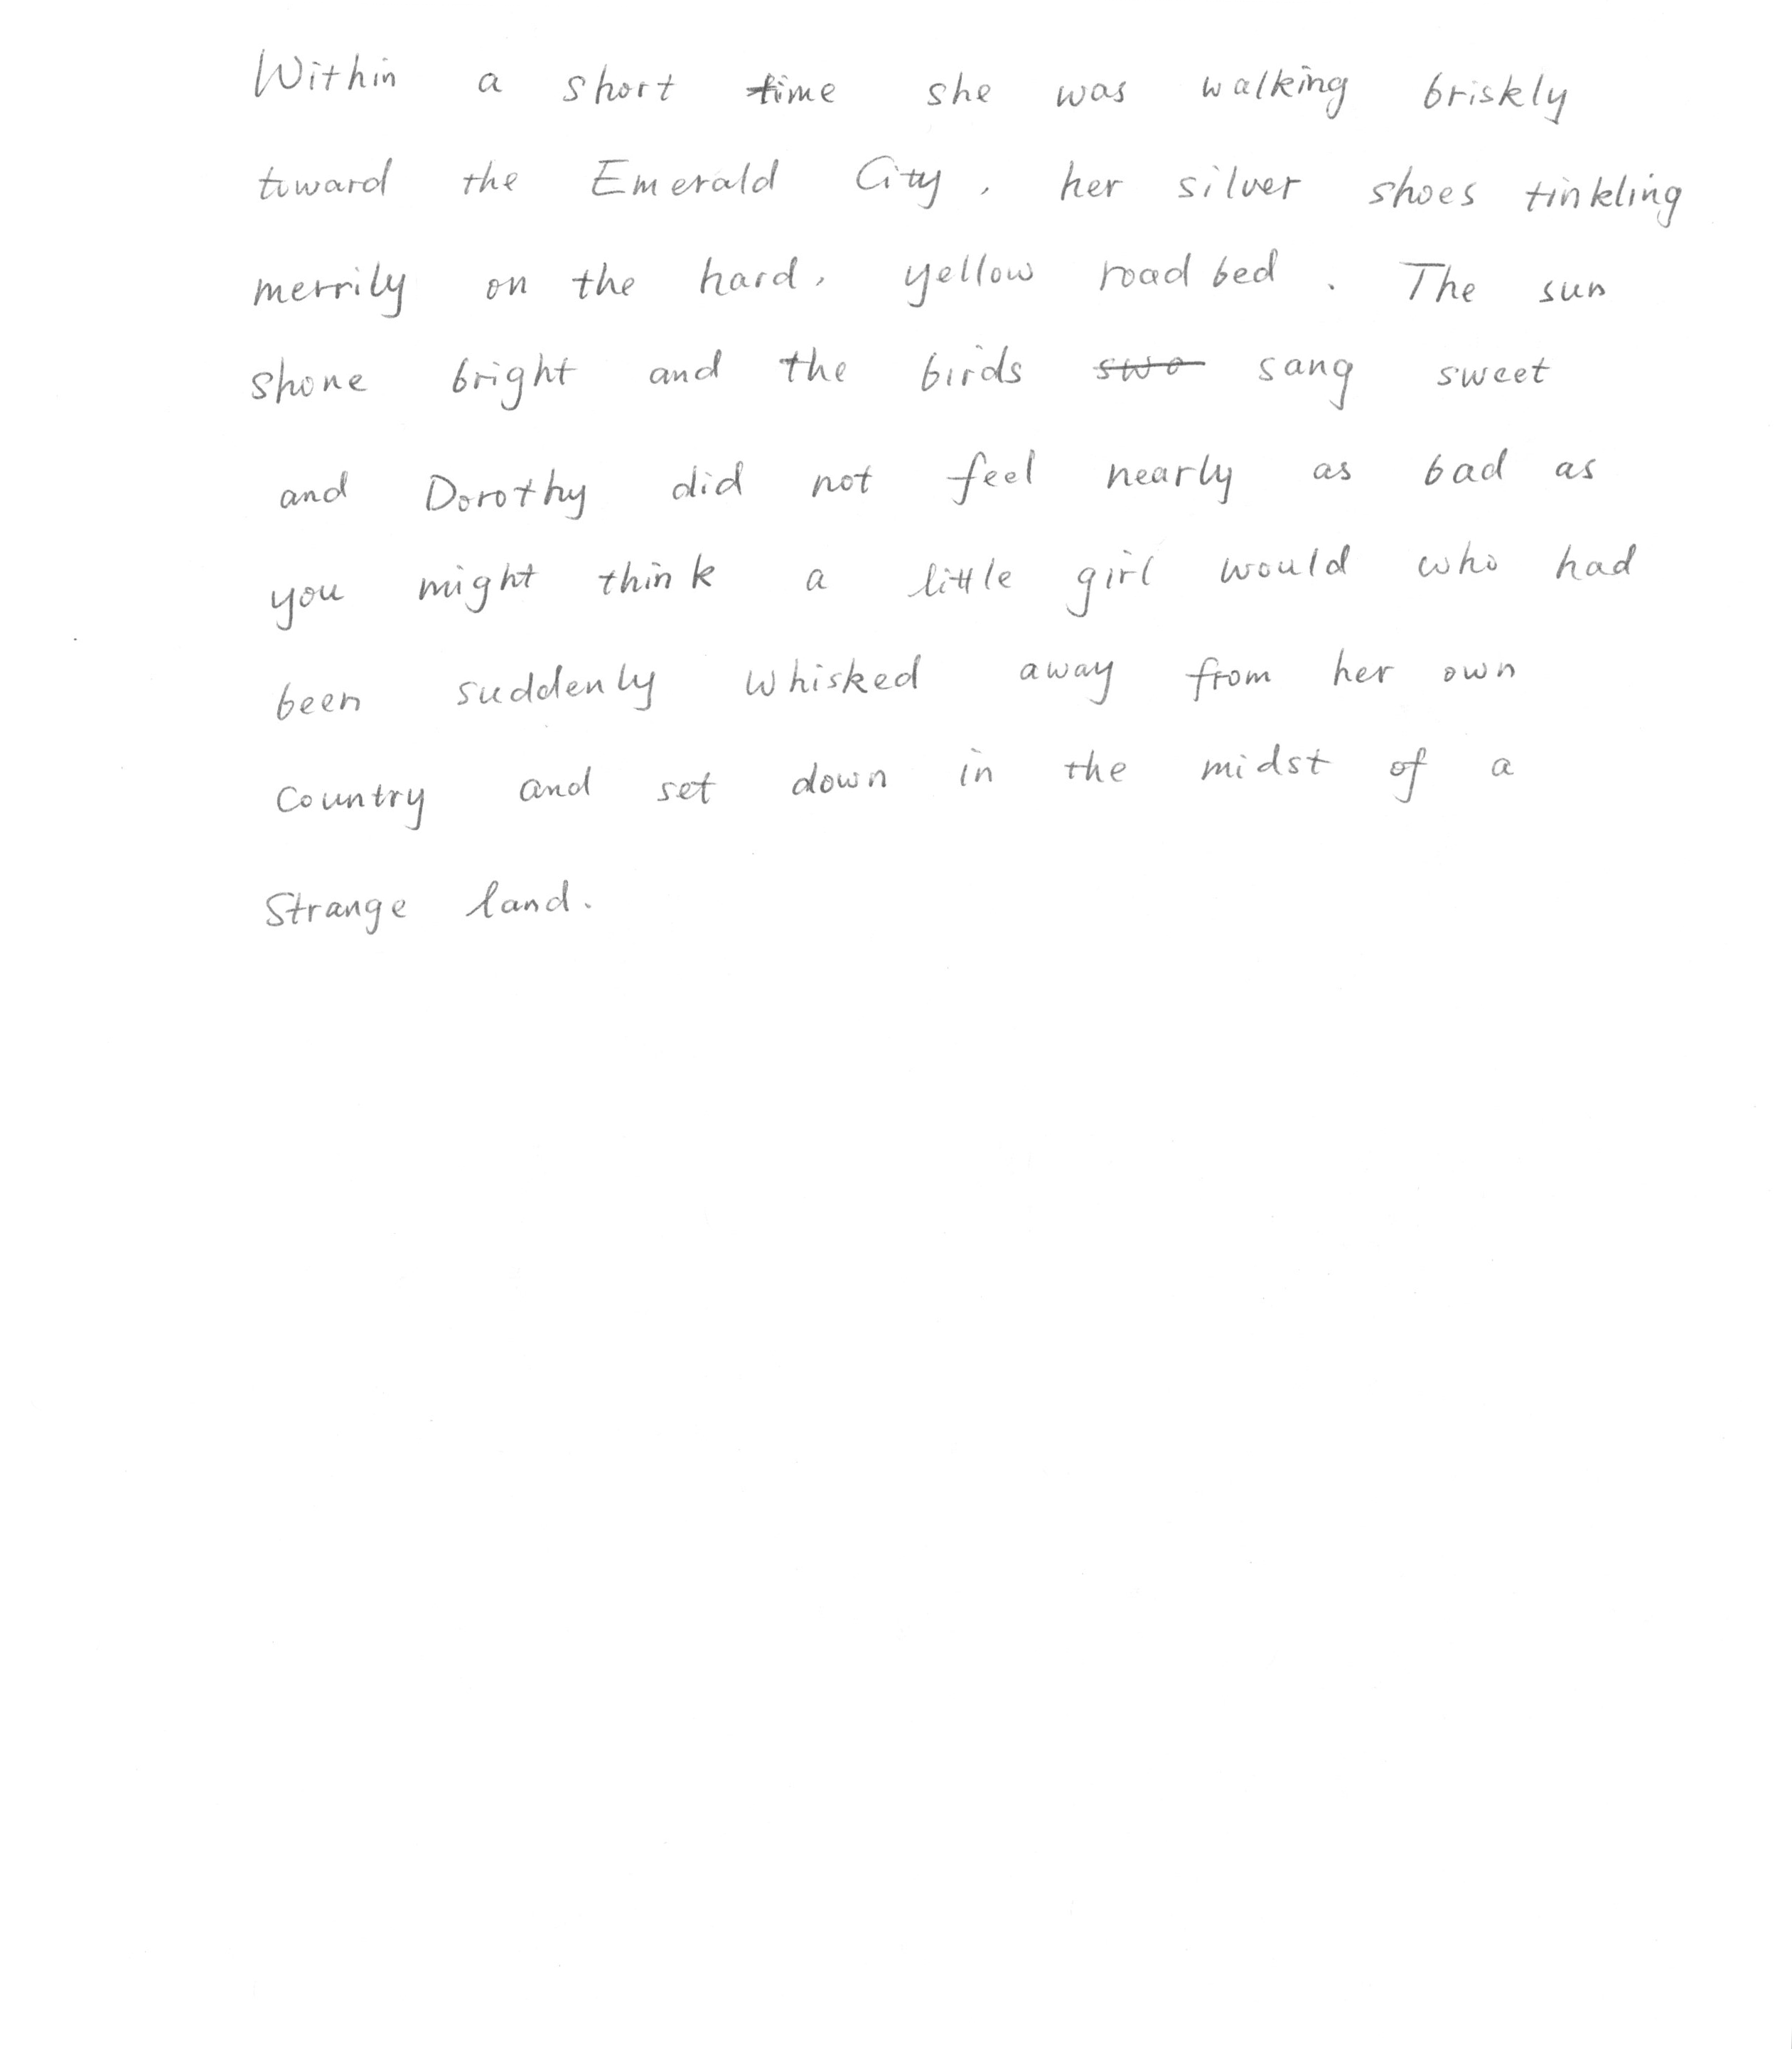 Within a short time she was walking briskly
toward the Emerald City, her silver shoes tinkling
merrily on the hard, yellow road bed. The sun
shone bright and the birds swo sang sweet
and Dorothy did not feel nearly as bad as
you might think a little girl would who had
been suddenly whisked away from her own
Country and set down in the midst of a
Strange land.